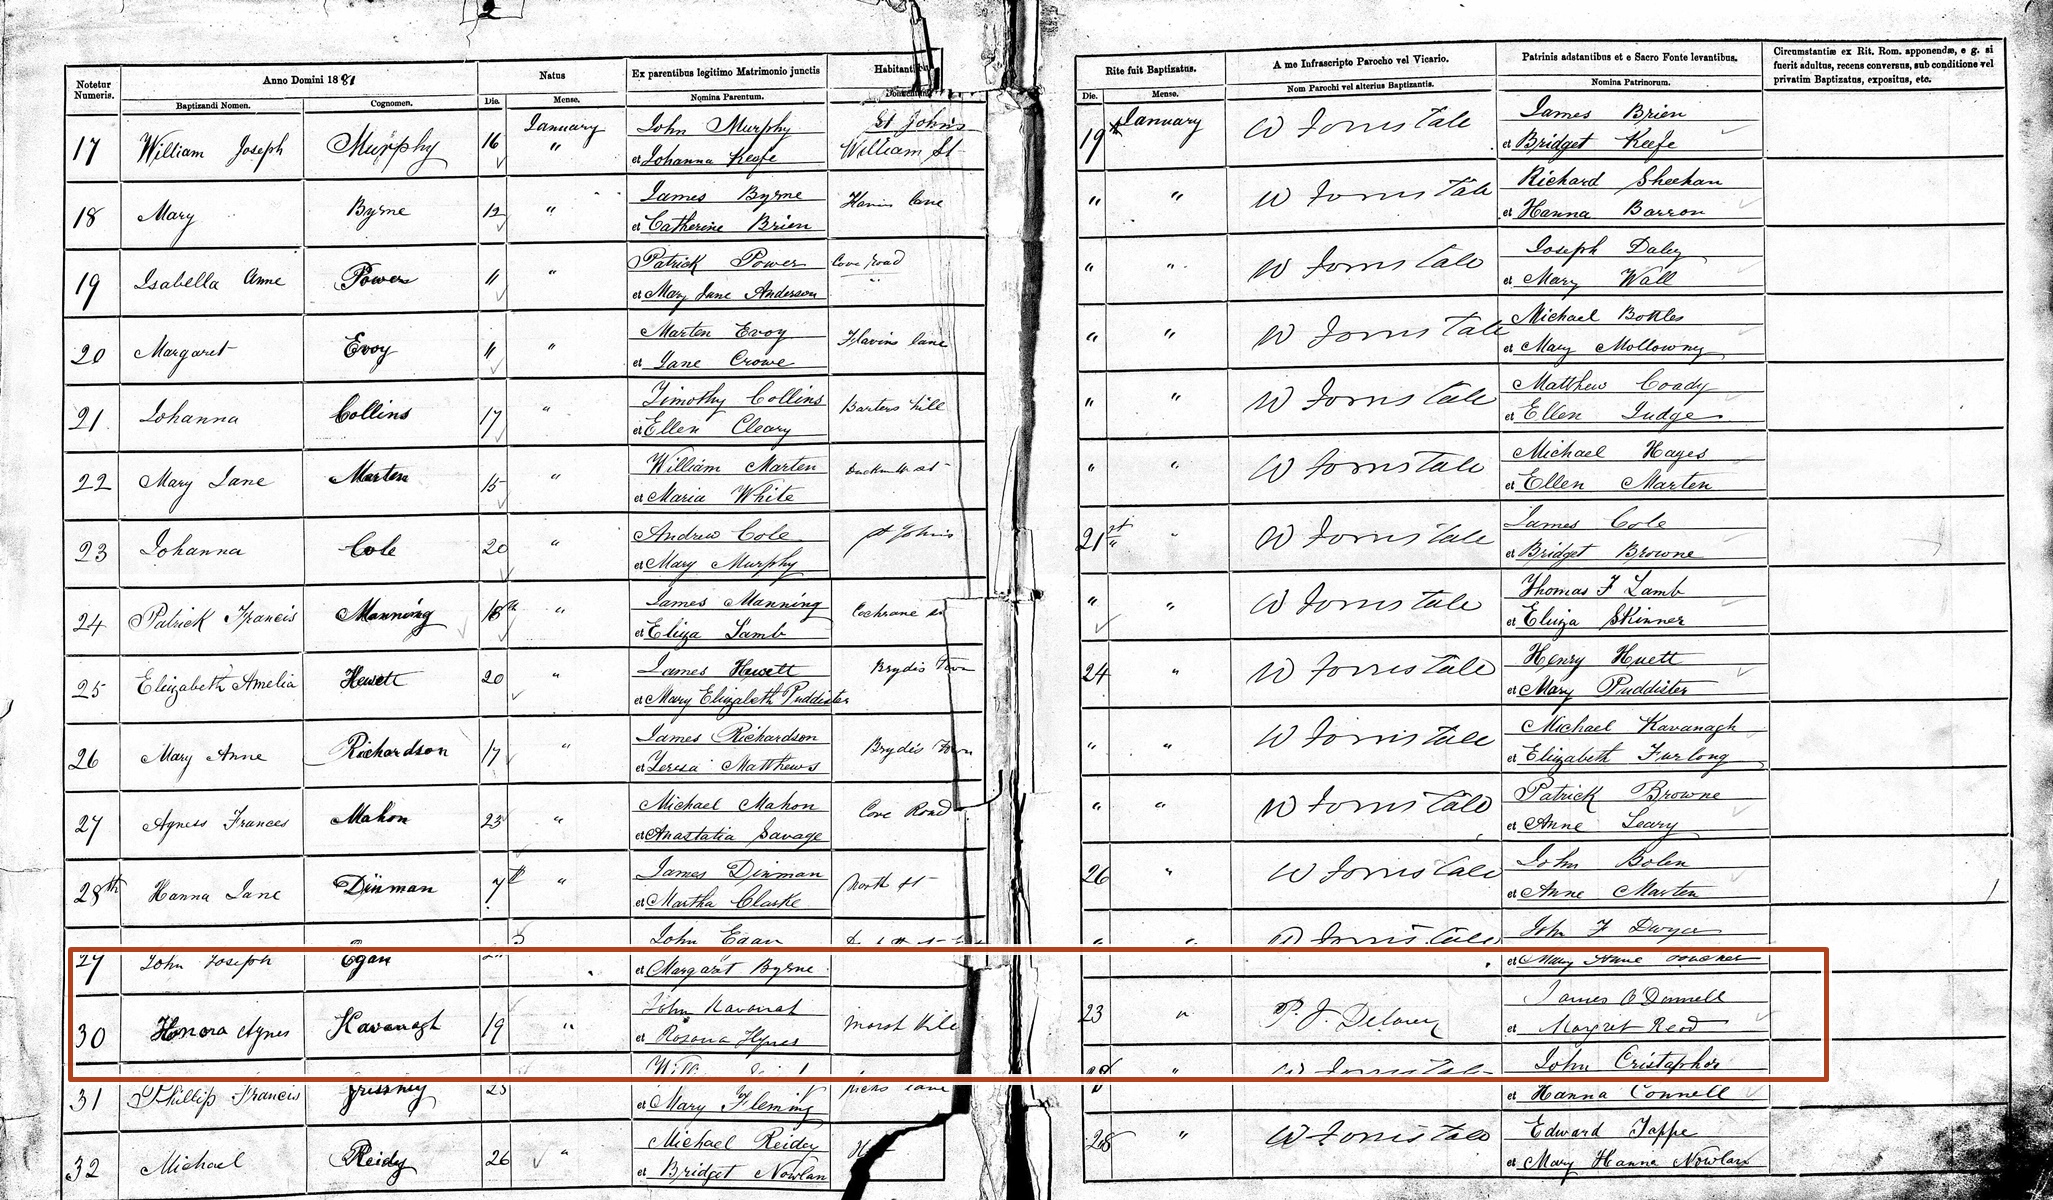 2
Notetur Numeris.
Anno Domini 1881
Baptizandi Nomen.
Cognomen.
Natus
Die.
Mense.
Ex parentibus legitimo Matrimonio junctis
Nomina Parentum.
Rite fuit Baptizatus.
Die.
Mense.
A me Infrascripto Parocho vel Vicario.
Nom Parochi vel alterius Baptizantis.
Patrinis adstantibus et e Sacro Fonte levantibus.
Nomina Patrinorum.
Circumstantiæ ex Rit. Rom. apponendæ, e g. si
fuerit adultus, recens conversus, sub conditione vel
privatim Baptizatus, expositus, etc.
January John Murphy St Johns January James Brien
17 William Joseph Murphy 16 " et Johanna Keefe William St 19th W Forristale et Bridget Keefe
James Byrne Richard Sheehan
18 Mary Byrne 12 " et Catherine Brien lane " " W Forristale et Hanna Barron
Patrick Power Cove road Joseph Daley
19 Isabella Anne Power " " et Mary Jane Anderson " " W Forristale et Mary Wall
Marten Evoy Michael Bottles
20 Margaret Evoy " " et Jane Crowe Flavins lane " " W Forristale et Mary Mollowny
Timothy Collins Matthew Coady
21 Johanna Collins 17 " et Ellen Cleary Barters hill " " W Forristale et Ellen Judge
William Marten Michael Hayes
22 Mary Jane Marten 15 " et Maria White st " " W Forristale et Ellen Marten
Andrew Cole St Johns James Cole
23 Johanna Cole 20 " et Mary Murphy 21st " W Forristale et Bridget Browne
James Manning Thomas F Lamb
24 Patrick Francis Manning 18th " et Eliza Lamb Cochrane st " " W Forristale et Eliza Skinner
James Hewett Brydis Town Henry Huett
25 Elizabeth Amelia Hewett 20 " et Mary Elizabeth Puddister 24 " W Forristale et Mary Puddister
James Richardson Michael Kavanagh
26 Mary Anne Richardson 17 " et Teresa Matthews Brydis Town " " W Forristale et Elizabeth Furlong
Michael Mahon Cove Road Patrick Browne
27 Agness Frances Mahon 23 " et Anastatia Savage " " W Forristale et Anne Leary
James Dinman John Bolen
28th Hanna Jane Dinman 7th " et Martha Clarke North st 26 " W Forristale et Anne Marten
John Egan " " W Forristale John F Dwyer
John Joseph Egan et Margaret Byrne et Mary Anne
John Kavanah James O'Donnell
30 Honora Agnes Kavanagh 19 " et Rosana Hynes 23 " P. J. Delaney et Margret Read
John Cristopher
31 Phillip Francis 25 et Mary Fleming lane et Hanna Connell
Michael Reidy Edward Tappe
32 Michael Reidy 26 " et Bridget Nowlan 28 " W Forristale et Mary Hanna Nowlan